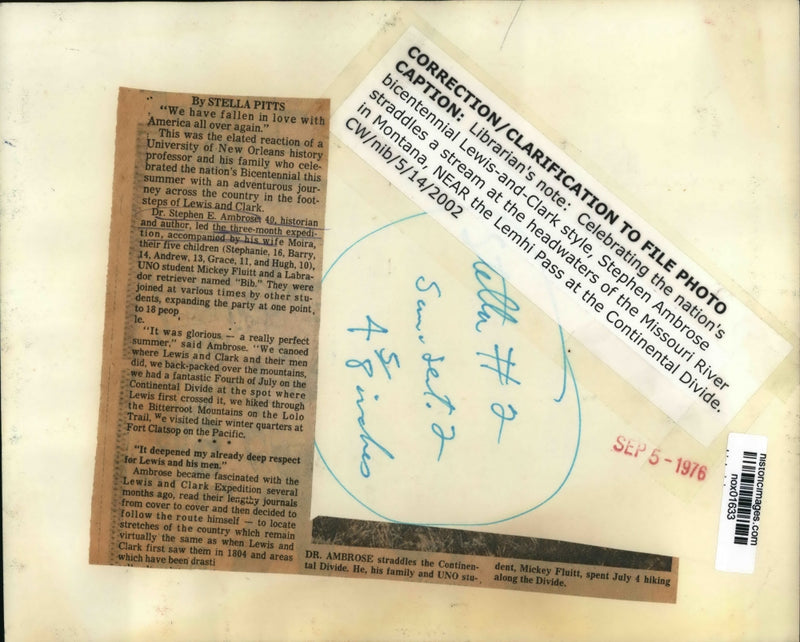 By STELLA PITTS
"We have fallen in love with
America all over again."
This was the elated reaction of a
University of New Orleans history
professor and his family who cele-
brated the nation's Bicentennial this
summer with an adventurous jour-
ney across the country in the foot-
steps of Lewis and Clark.
Dr. Stephen E. Ambrose, 40, historian
and author, led the three-month expedi-
tion, accompanied by his wife Moira,
their five children (Stephanie, 16, Barry,
14, Andrew, 13, Grace, 11, and Hugh, 10),
UNO student Mickey Fluitt and a Labra-
dor retriever named "Bib." They were
joined at various times by other stu-
dents, expanding the party at one point,
to 18 peop
le.
"It was glorious — a really perfect
summer," said Ambrose. "We canoed
where Lewis and Clark and their men
did, we back-packed over the mountains,
we had a fantastic Fourth of July on the
Continental Divide at the spot where
Lewis first crossed it, we hiked through
the Bitterroot Mountains on the Lolo
Trail. We visited their winter quarters at
Fort Clatsop on the Pacific.
* * *
"It deepened my already deep respect
for Lewis and his men."
Ambrose became fascinated with the
Lewis and Clark Expedition several
months ago, read their lengthy journals
from cover to cover and then decided to
follow the route himself — to locate
stretches of the country which remain
virtually the same as when Lewis and
Clark first saw them in 1804 and areas
which have been drasti
DR. AMBROSE straddles the Continen-
tal Divide. He, his family and UNO stu-
dent, Mickey Fluitt, spent July 4 hiking
along the Divide.
CORRECTION/CLARIFICATION TO FILE PHOTO
CAPTION: Librarian's note: Celebrating the nation's
bicentennial Lewis-and-Clark style, Stephen Ambrose
straddles a stream at the headwaters of the Missouri River
in Montana, NEAR the Lemhi Pass at the Continental Divide.
CW/nib/5/14/2002
# 2
4 5/8 inches
SEP 5 - 1976
historicimages.com
nox01633